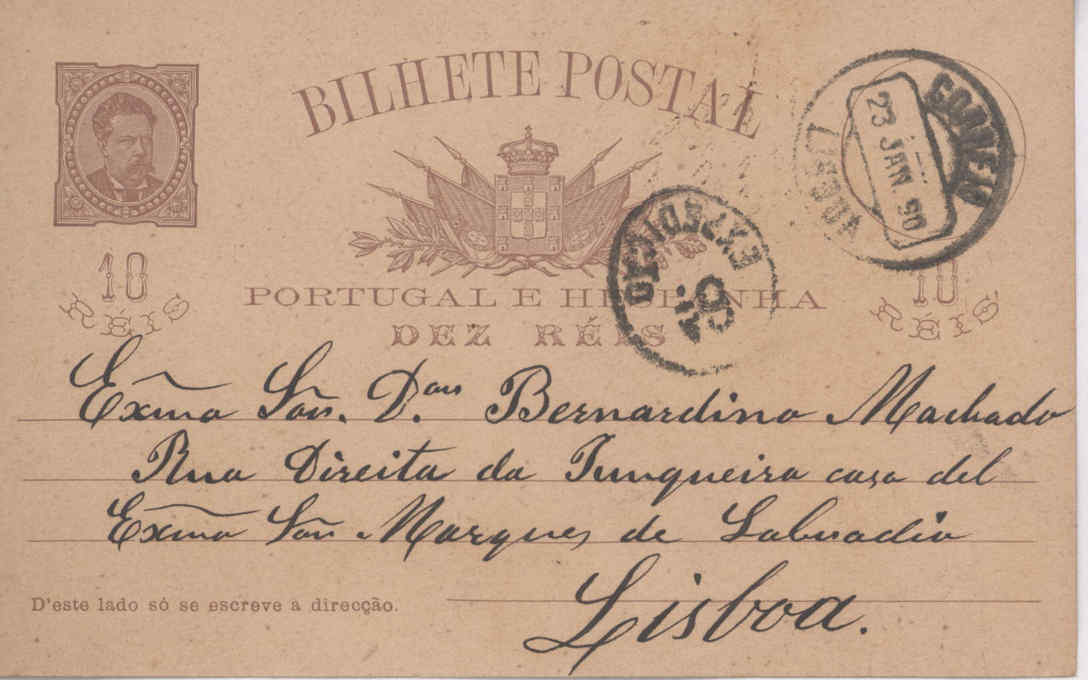 BILHETE POSTAL
CORREIO
23 JAN 90
LISBOA
EXPEDIÇÃO
10 RÉIS
10 RÉIS
PORTUGAL E HESPANHA
DEZ RÉIS
Exmo Snr. Dor Bernardino Machado
Rua Direita da Junqueira casa del
Exmo Snr Marques de
Lisboa.
D'este lado só se escreve a direcção.